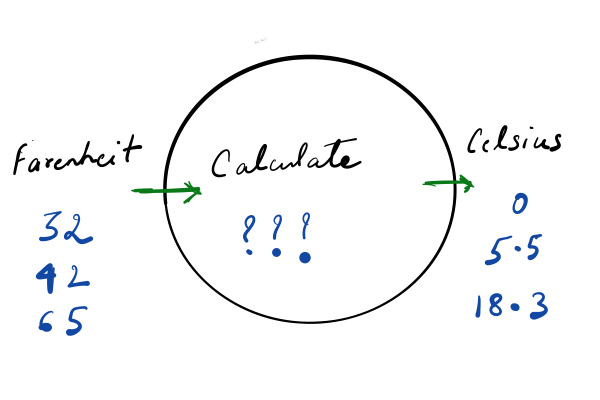 Farenheit
32
42
65
Calculate
???
Celsius
0
5.5
18.3